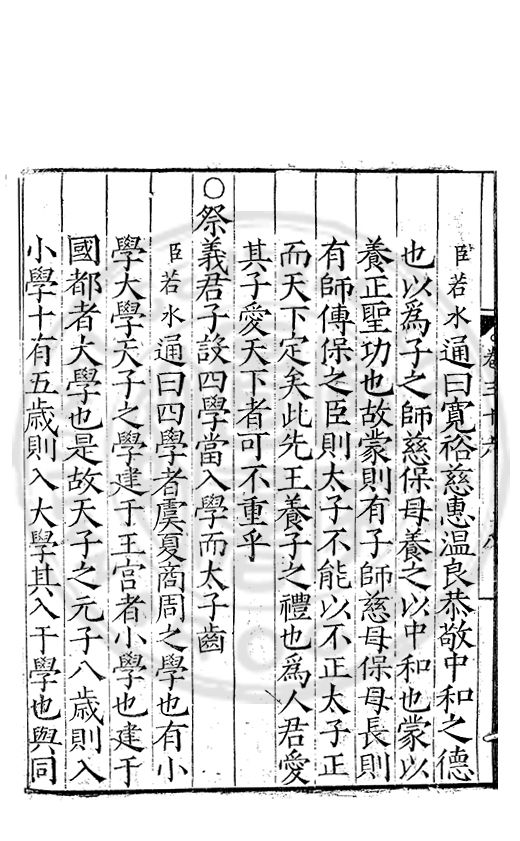 臣若水通曰寛裕慈惠温良恭敬中和之德
也以爲子之師慈保母養之以中和也蒙以
養正聖功也故蒙則有子師慈母保母長則
有師傅保之臣則太子不能以不正太子正
而天下定矣此先王養子之禮也爲人君愛
其子愛天下者可不重乎
○祭義君子設四學當入學而太子齒
臣若水通曰四學者虞夏商周之學也有小
學大學天子之學建于王宫者小學也建于
國都者大學也是故天子之元子八歳則入
小學十有五歳則入大學其入于學也與同